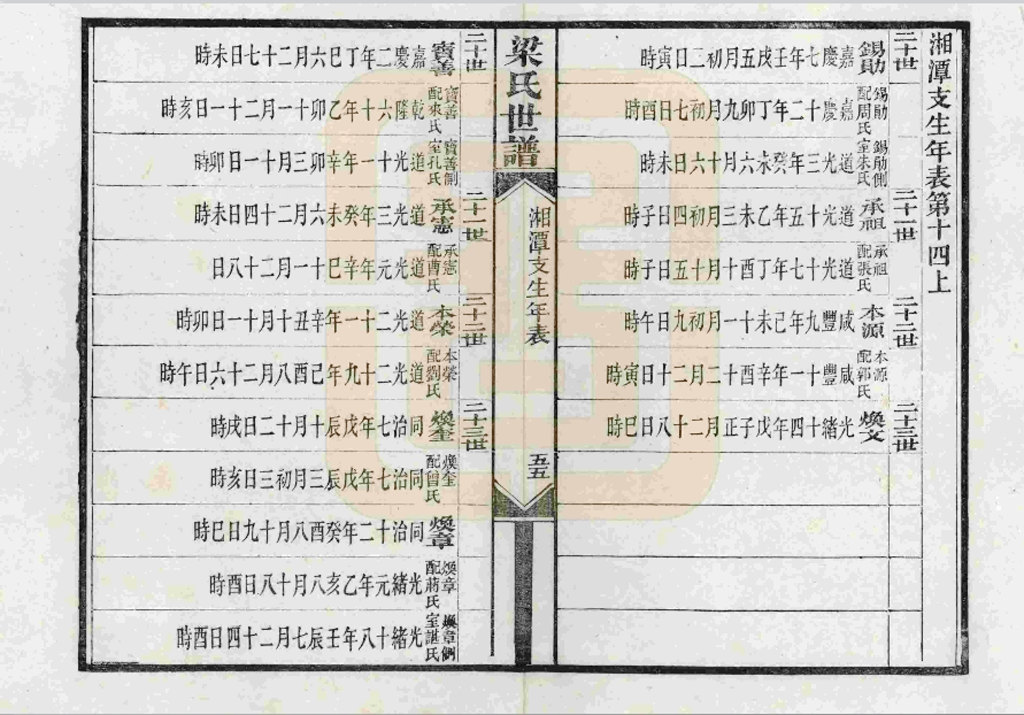 湘潭支生年表第十四上
二十世
錫勛 嘉慶七年壬戌五月初三日寅時
錫勛配周氏 嘉慶十二年丁卯九月初七日酉時
錫勛側室朱氏 道光三年癸未六月十六日未時
二十一世
承祖 道光十五年乙未三月初四日子時
承祖配張氏 道光十七年丁酉十月十五日子時
二十二世
本源 咸豐九年己未十一月初九日午時
本源配郭氏 咸豐十一年辛酉十二月二十日寅時
二十三世
煥文 光緒十四年戊子正月二十八日巳時
梁氏世譜
湘潭支生年表
五五
二十世
寶善 嘉慶二年丁巳六月二十七日未時
寶善配氏 乾隆六十年乙卯十一月二十一日亥時
寶善側室孔氏 道光十一年辛卯三月十一日卯時
二十一世
承憲 道光三年癸未六月二十四日未時
承憲配曹氏 道光元年辛巳十一月二十八日
二十二世
本榮 道光二十一年辛丑十月十一日卯時
本榮配劉氏 道光二十九年己酉八月二十六日午時
二十三世
煥奎 同治七年戊辰十月二十日戌時
煥奎配曾氏 同治七年戊辰三月初三日亥時
煥章 同治十二年癸酉八月十九日巳時
煥章配蔣氏 光緒元年乙亥八月十八日酉時
煥章側室諶氏 光緒十八年壬辰七月二十四日酉時